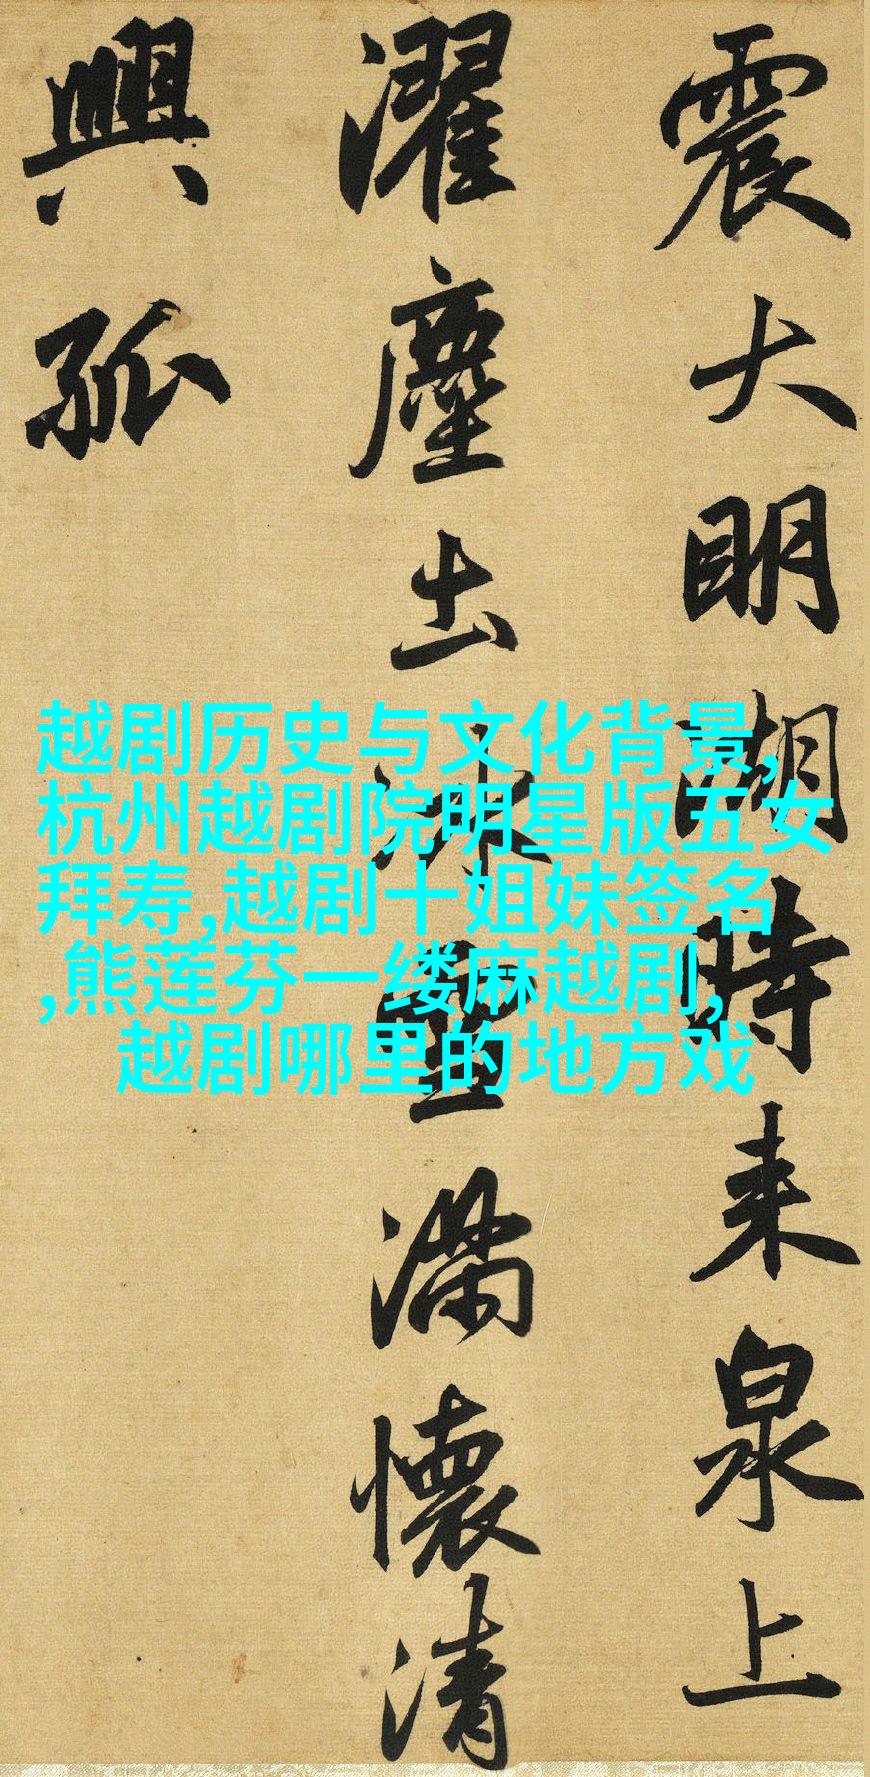 震大明湖時来泉上
濯塵出冰雪滿懷清
興孤
越剧历史与文化背景,
杭州越剧院明星版五女
拜寿,越剧十姐妹签名
,熊莲芬一缕麻越剧,
越剧哪里的地方戏